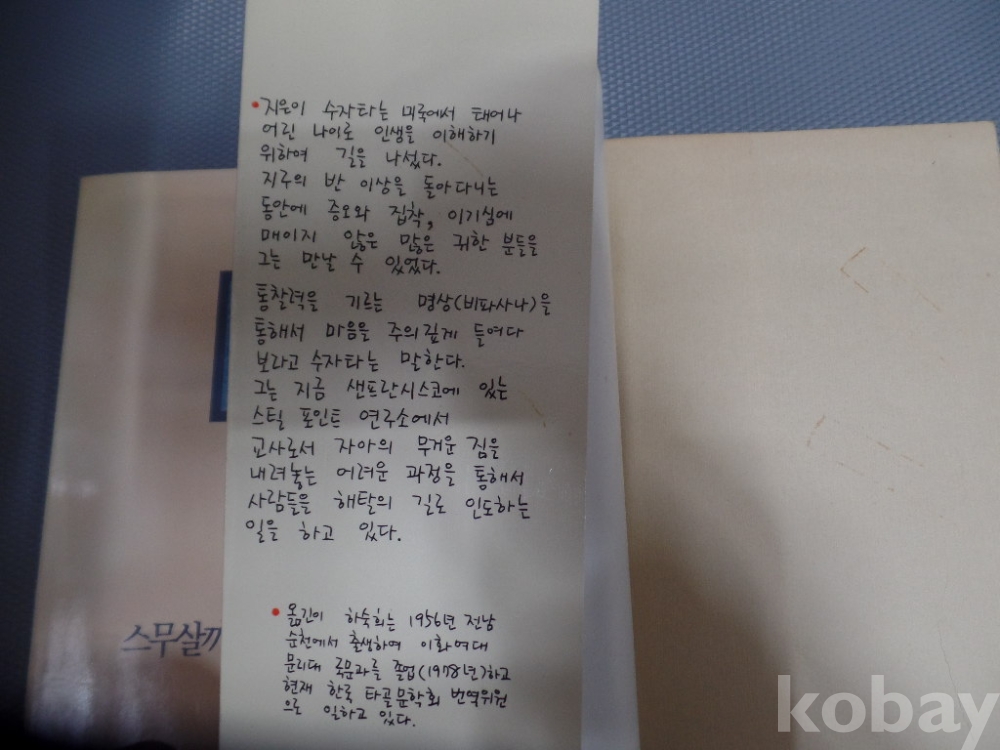 • 지은이 수자타는 미국에서 태어나
어린 나이로 인생을 이해하기
위하여 길을 나섰다.
지구의 반 이상을 돌아다니는
동안에 증오와 집착, 이기심에
매이지 않은 많은 귀한 분들을
그는 만날 수 있었다.
통찰력을 기르는 명상(비파사나)을
통해서 마음을 주의깊게 들여다
보라고 수자타는 말한다.
그는 지금 샌프란시스코에 있는
스틸 포인트 연구소에서
교사로서 자아의 무거운 짐을
내려놓는 어려운 과정을 통해서
사람들을 해탈의 길로 인도하는
일을 하고 있다.
• 옮긴이 하숙희는 1956년 전남
순천에서 출생하여 이화여대
문리대 국문과를 졸업(1978년)하고
현재 한국 타골문학회 번역위원
으로 일하고 있다.
스무살까
kobay